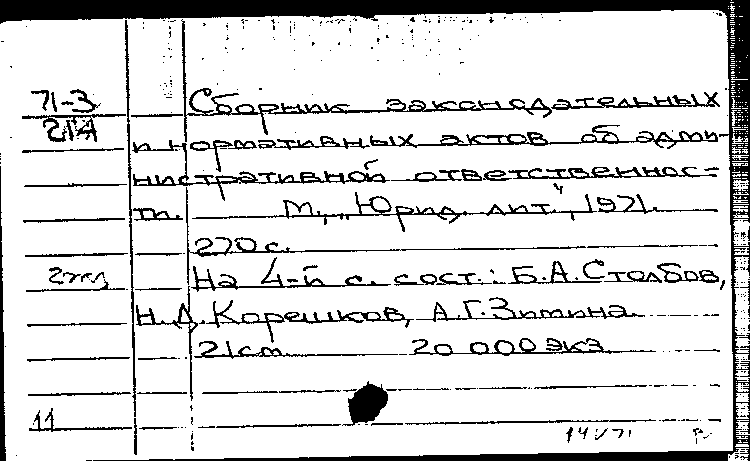 71-3 Сборник законодательных
214 и нормативных актов об адми-
нистративной ответственнос-
ти. М., „Юрид. лит.“, 1971.
270 с.
2экз На 4-й с. сост.: Б.А.Столбов,
Н.Д.Корешков, А.Г.Зимина.
21см. 20 000 экз.
11
14 V 71